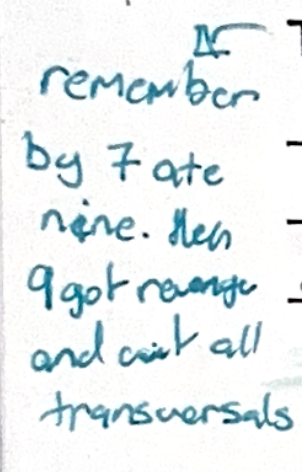 IV
remember
by 7 ate
nine. then
9 got revenge
and cut all
transversals